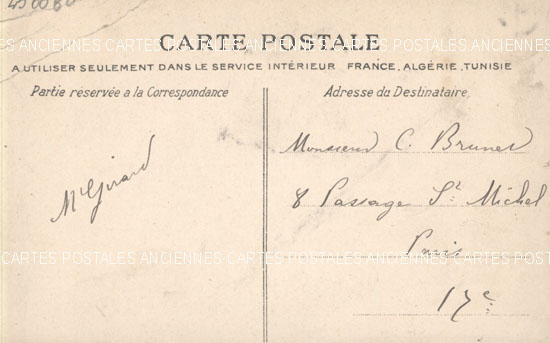 CARTE POSTALE
A UTILISER SEULEMENT DANS LE SERVICE INTÉRIEUR FRANCE, ALGÉRIE, TUNISIE
Partie réservée a la Correspondance
Adresse du Destinataire
Mr Girard
Monsieur C. Brunet
8 Passage St Michel
Paris
17e
CARTES POSTALES ANCIENNES CARTES POSTALES ANCIENNES CARTES POSTALES ANCIENNES
CARTES POSTALES ANCIENNES CARTES POSTALES ANCIENNES CARTES POSTALES ANCIENNES